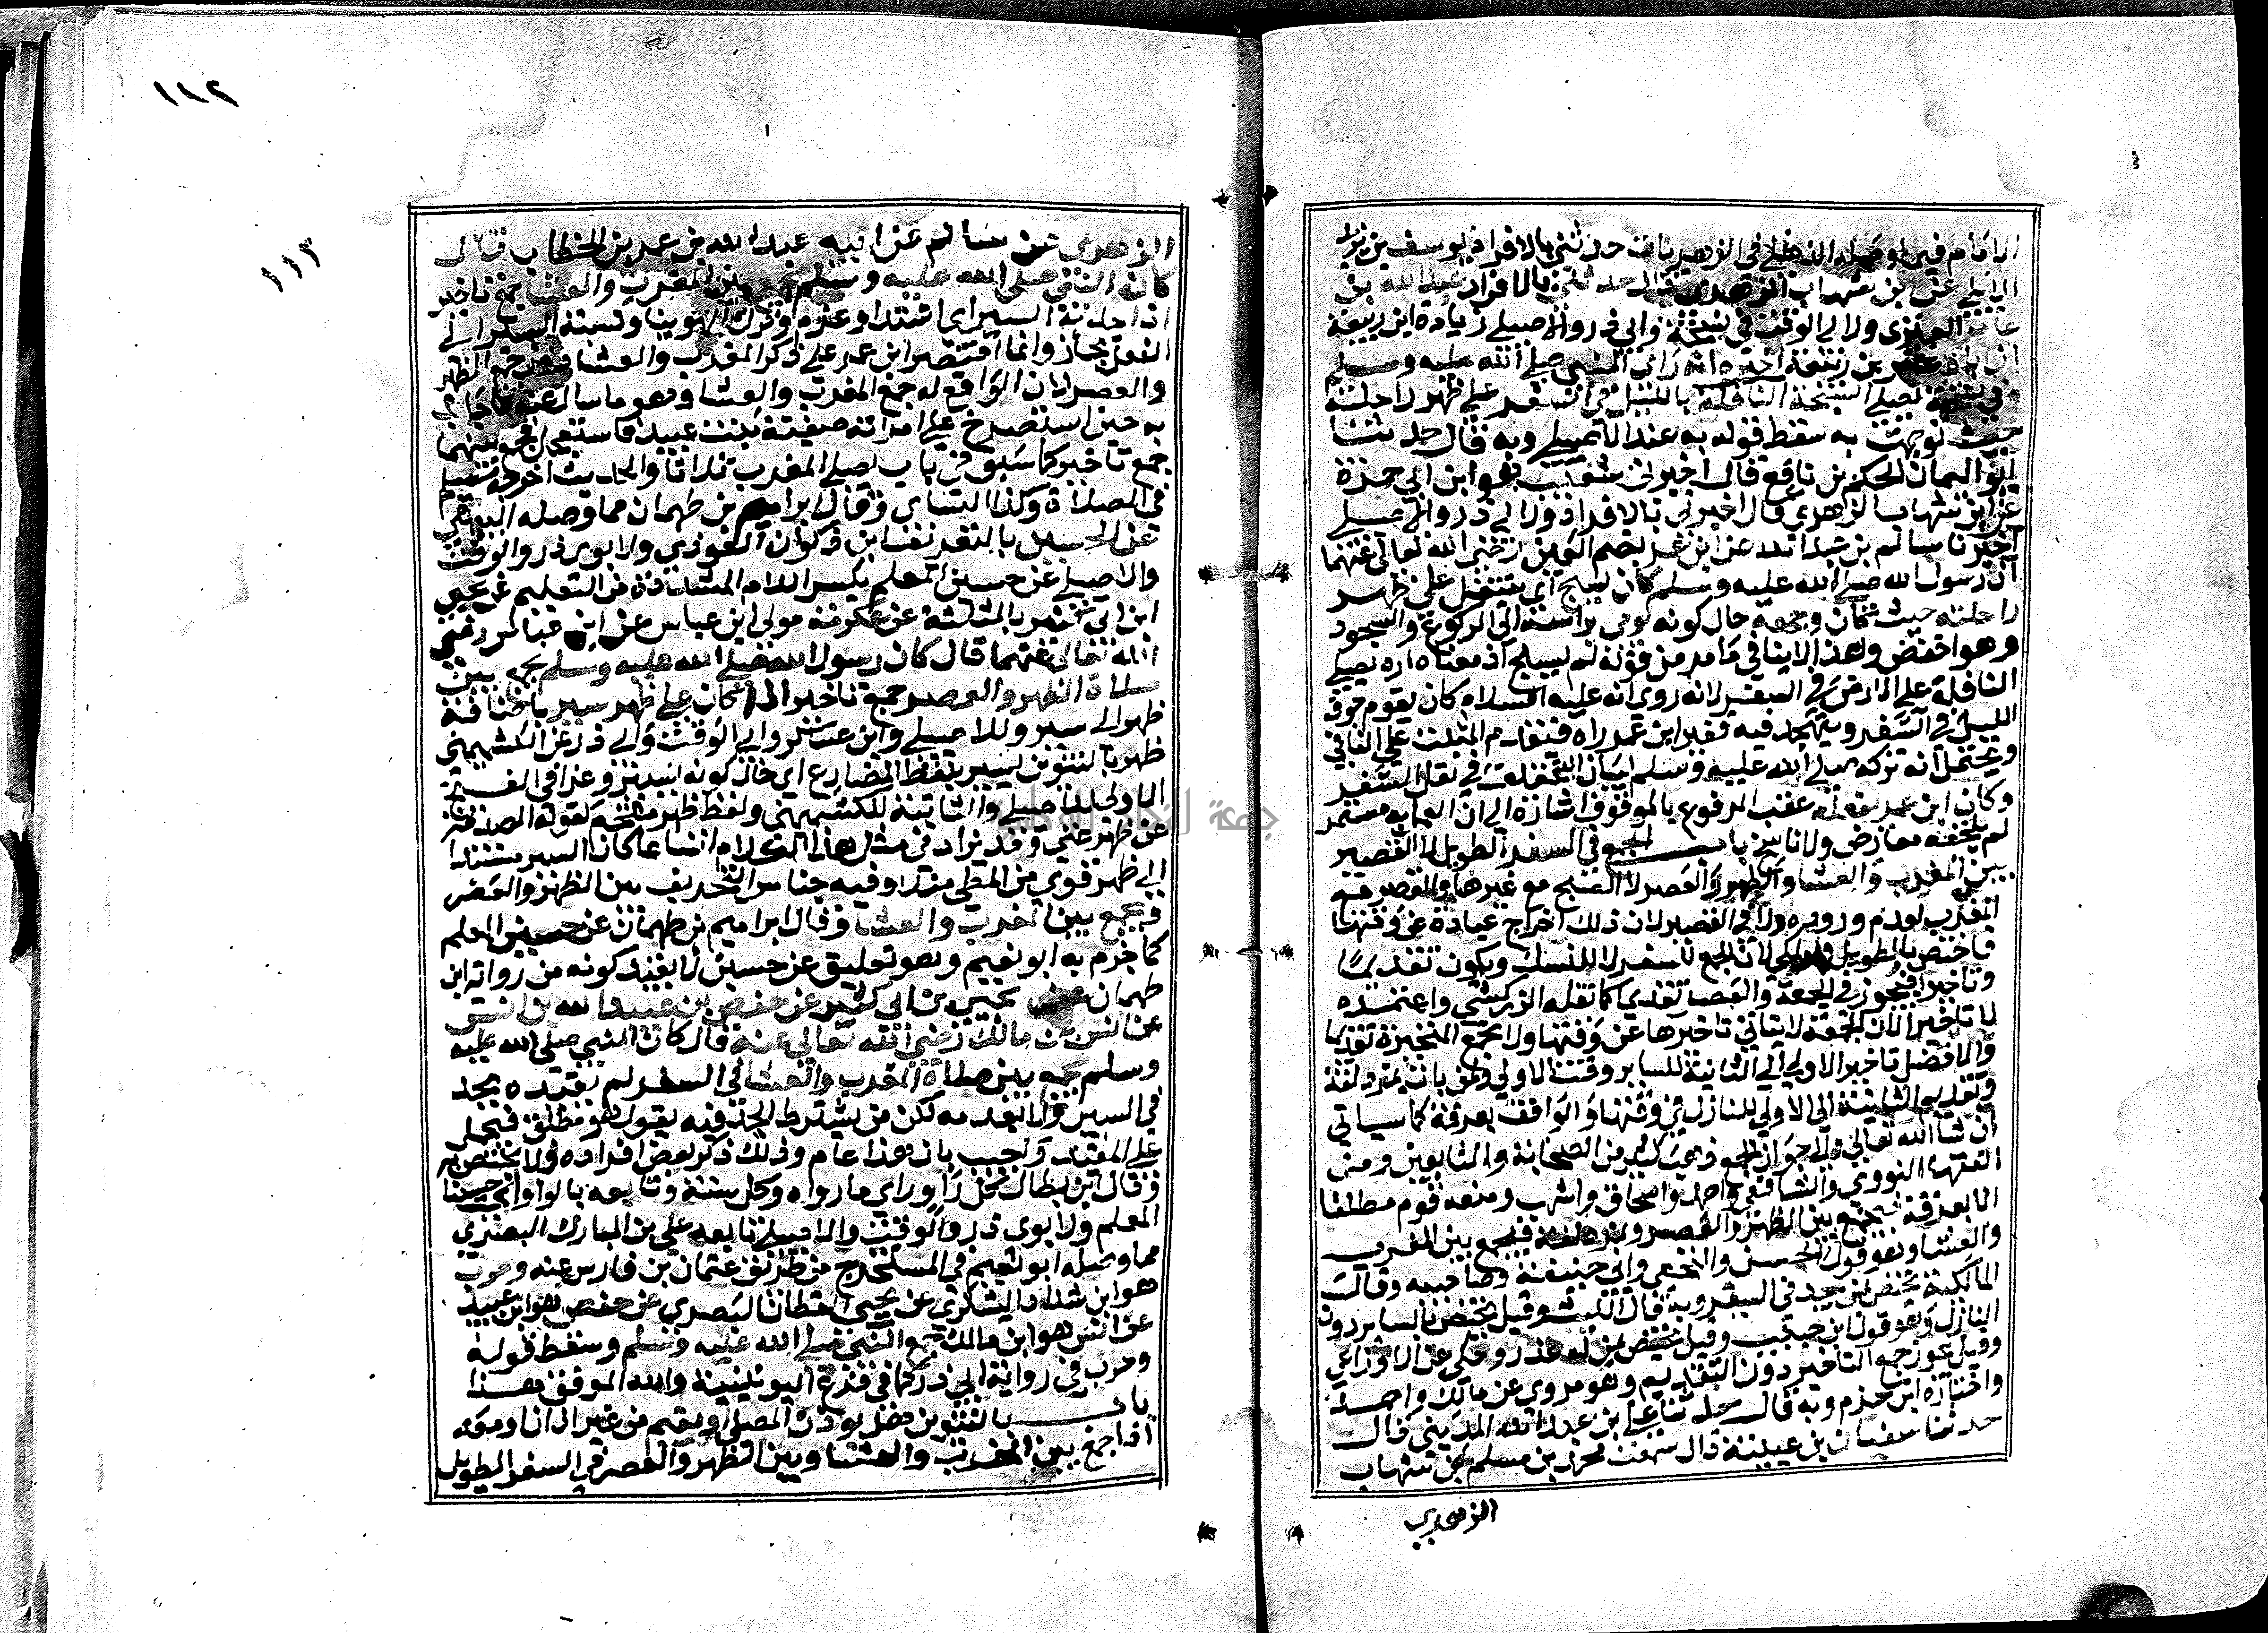 الامام فيما وصله الذهلي في الزهريات حدثني بالافراد يوسف بن يزيد
الايلي عن ابن شهاب الزهري قال حدثني بالافراد عبد الله بن
عامر العنزي ولابي الوقت في نسخة وابي ذر والاصيلي زيادة ابن ربيعة
ان اباه عامر بن ربيعة اخبره انه راى النبي صلى الله عليه وسلم
يصلي السبحة النافلة بالليل في السفر على ظهر راحلته
حيث توجهت به سقط قوله به عند الاصيلي وبه قال حدثنا
ابو اليمان الحكم بن نافع قال اخبرني شعيب هو ابن ابي حمزة
عن ابن شهاب الزهري قال اخبرني بالافراد ولابي ذر والاصيلي
اخبرنا سالم بن عبد الله عن ابن عمر بضم العين رضي الله تعالى عنهما
ان رسول الله صلى الله عليه وسلم كان يسبح اي يتنفل على ظهر
راحلته حيث كان وجهه حال كونه يومي براسه الى الركوع والسجود
وهو اخفض وهذا لا ينافي ما مر من قوله لم يسبح اذ معناه اره يصلي
النافلة على الارض في السفر لانه روي انه عليه السلام كان يقوم جوف
الليل في السفر ويتهجد فيه فغير ابن عمر راه فيقدم المثبت على النافي
ويحتمل انه تركه صلى الله عليه وسلم لبيان التخفيف في نفل السفر
وكان ابن عمر يفعله عقب المرفوع بالموقوف اشارة الى ان العمل به مستمر
لم يلحقه معارض ولا ناسخ باب الجمع في السفر الطويل لا القصير
بين المغرب والعشا والظهر والعصر لا الصبح مع غيرها والعصر مع
المغرب لعدم وروده ولا في القصير لان ذلك اخراج عبادة عن وقتها
فاختص بالطويل ولو لمكي لان الجمع للسفر لا للنسك ويكون تقديما
وتاخيرا فيجوز في الجمعة والعصر تقديما كما نقله الزركشي واعتمده
لا تاخيرا لان الجمعة لا يتاتى تاخيرها عن وقتها ولا تجمع المتحيرة تقديما
والافضل تاخير الاولى الى الثانية للساير وقت الاولى ولمن بات بمزدلفة
وتقديم الثانية الى الاولى للنازل في وقتها والواقف بعرفة كما سياتي
ان شا الله تعالى والى جواز الجمع ذهب كثير من الصحابة والتابعين ومن
الفقها النووي والشافعي واحمد واسحاق واشهب ومنعه قوم مطلقا
الا بعرفة فيجمع بين الظهر والعصر ومزدلفة فيجمع بين المغرب
والعشا وهو قول الحسن والنخعي وابي حنيفة وصاحبيه وقالت
المالكية يختص بمن يجد في السفر وبه قال الليث وقيل يختص بالساير دون
النازل وهو قول ابن حبيب وقيل يختص بمن له عذر وحكي عن الاوزاعي
وقيل يجوز جمع التاخير دون التقديم وهو مروي عن مالك واحمد
واختاره ابن حزم وبه قال حدثنا علي بن عبد الله المديني قال
حدثنا سفيان بن عيينة قال سمعت محمد بن مسلم بن شهاب
الزهري
١١٢
١١٣
الزهري عن سالم عن ابيه عبد الله بن عمر بن الخطاب قال
كان النبي صلى الله عليه وسلم يجمع بين المغرب والعشا جمع تاخير
اذا جد به السير اي اشتد او عزم وترك الهوينا ونسبة السير الى
الفعل مجاز وانما اقتصر ابن عمر على ذكر المغرب والعشا دون جمع الظهر
والعصر لان الواقع له جمع المغرب والعشا وهو ما سال عنه فاجاب
به حين استصرخ على امراته صفية بنت عبيد فاستعجل فجمع بينهما
جمع تاخير كما سبق في باب يصلي المغرب ثلاثا والحديث اخرجه مسلم
في الصلاة وكذا النساي وقال ابراهيم بن طهمان مما وصله البيهقي
عن الحسين بالتعريف ابن ذكوان العوذي ولابوي ذر والوقت
والاصيلي عن حسين المعلم بكسر اللام المشددة من التعليم عن يحيى
ابن ابي كثير بالمثلثة عن عكرمة مولى ابن عباس عن ابن عباس رضي
الله تعالى عنهما قال كان رسول الله صلى الله عليه وسلم يجمع بين
صلاة الظهر والعصر جمع تاخير اذا كان على ظهر سير باضافة
ظهر الى سير وللاصيلي وابن عساكر وابي الوقت وابي ذر عن الكشميهني
ظهر بالتنوين يسير بلفظ المضارع اي حال كونه يسير وعزا في الفتح
الاولى للاصيلي والثانية للكشميهني ولفظ ظهر مقحم لقوله الصدقة
عن ظهر غنى وقد تزاد في مثل هذا الكلام اتساعا كان السير مستندا
الى ظهر قوي من المطي مثلا وفيه جناس التحريف بين الظهر والظهر
ويجمع بين المغرب والعشا وقال ابراهيم بن طهمان عن حسين المعلم
كما جزم به ابو نعيم وهو تعليق عن حسين لا بقيد كونه من رواية ابن
طهمان عن يحيى بن ابي كثير عن حفص بن عبيد الله بن انس
عن انس بن مالك رضي الله تعالى عنه قال كان النبي صلى الله عليه
وسلم يجمع بين صلاة المغرب والعشا في السفر لم يقيده بجد
في السير ولا بعدمه لكن من يشترط الجد فيه يقول هو مطلق فيحمل
على المقيد واجيب بان هذا عام وذلك ذكر بعض افراده ولا يختص به
وقال ابن بطال كل راو راي ما رواه وكل سنة وتابعه بالواو اي حسينا
المعلم ولابوي ذر والوقت والاصيلي تابعه علي بن المبارك البصري
مما وصله ابو نعيم في المستخرج من طريق عثمان بن فارس عنه وحرب
هو ابن شداد اليشكري عن يحيى القطان البصري عن حفص هو ابن عبيد
عن انس هو ابن مالك جمع النبي صلى الله عليه وسلم وسقط قوله
وحرب في رواية ابي ذر كما في فرع اليونينية والله الموفق هذا
باب بالتنوين هل يوذن المصلي او يقيم من غير اذان او معه
اذا جمع بين المغرب والعشا وبين الظهر والعصر في السفر الطويل